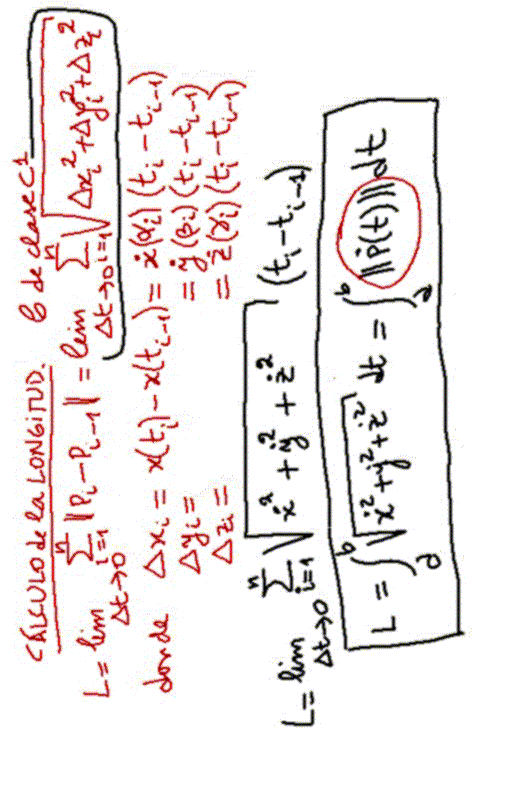 CÁLCULO de la LONGITUD. 𝒞 de clase C¹
L = lim Δt→0 Σ i=1 n ‖Pi − Pi−1‖ = lim Δt→0 Σ i=1 n √(Δxi² + Δyi² + Δzi²)
donde Δxi = x(ti) − x(ti−1) = ẋ(αi) (ti − ti−1)
Δyi = = ẏ(βi) (ti − ti−1)
Δzi = = ż(γi) (ti − ti−1)
L = lim Δt→0 Σ i=1 n √(ẋ² + ẏ² + ż²) (ti − ti−1)
L = ∫ a b √(ẋ² + ẏ² + ż²) dt = ∫ a b ‖Ṗ(t)‖ dt